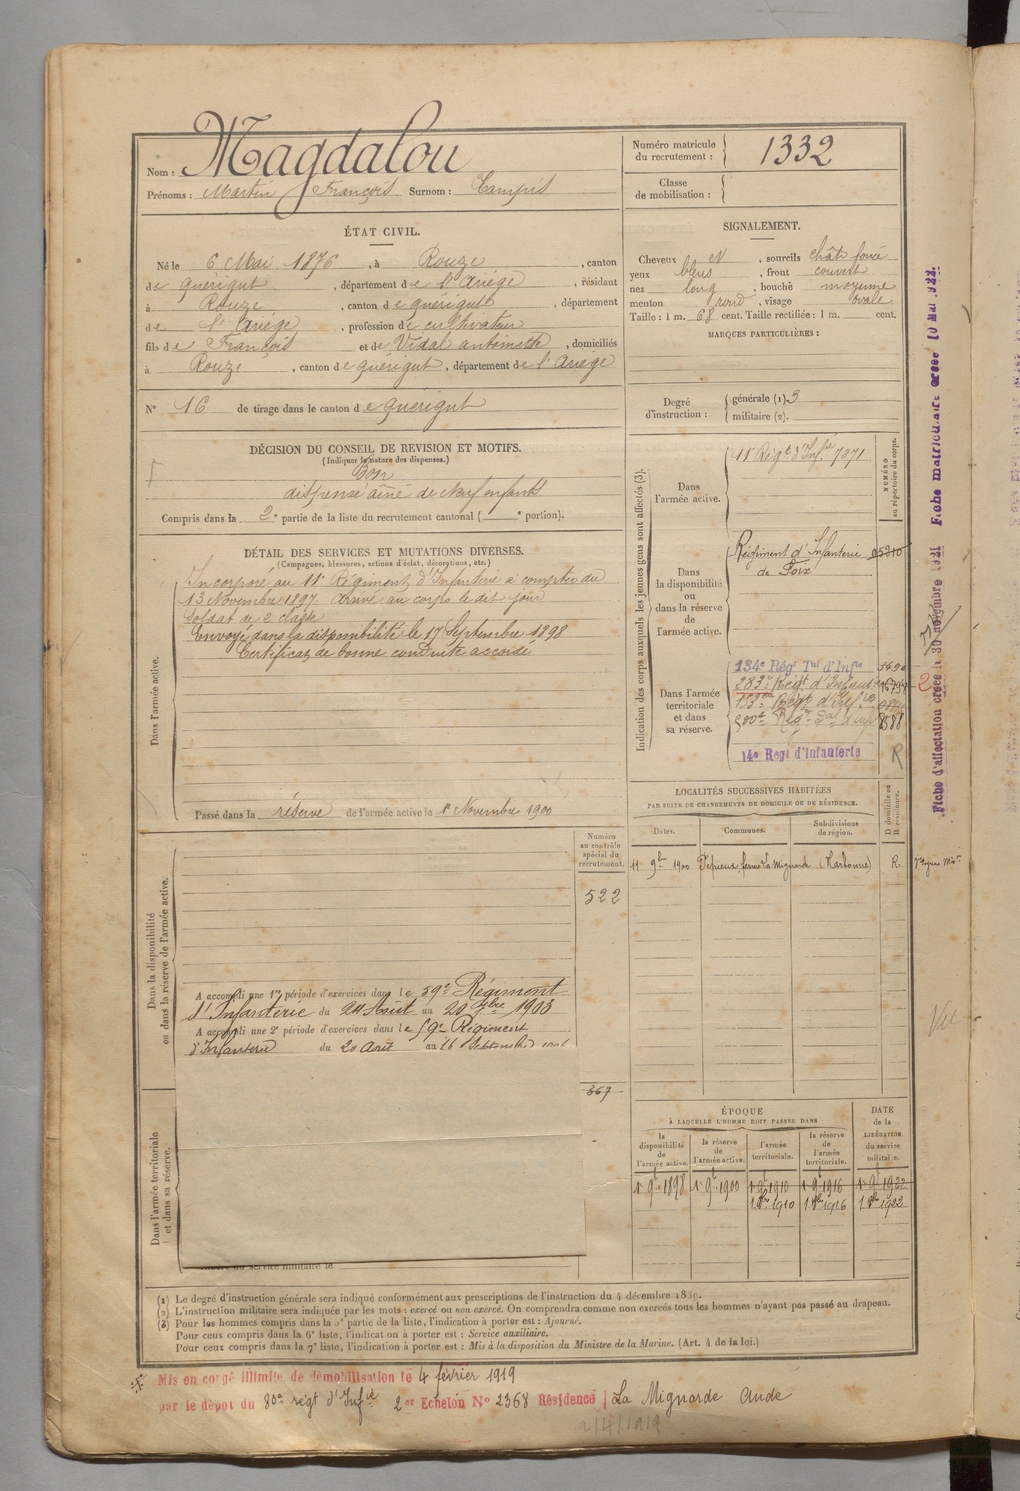 Nom : Magdalou
Prénoms : Martin François Surnom : Campis
Numéro matricule du recrutement : 1332
Classe de mobilisation :
ÉTAT CIVIL.
Né le 6 Mai 1876, à Rouze, canton
de Quérigut, département de l'Ariège, résidant
à Rouze, canton de Quérigut, département
de l'Ariège, profession de cultivateur
fils de François et de Vidal antoinette, domiciliés
à Rouze, canton de Quérigut, département de l'Ariège
N° 16 de tirage dans le canton de Quérigut
SIGNALEMENT.
Cheveux et, sourcils chât. foncé
yeux bleus, front couvert
nez long, bouche moyenne
menton rond, visage ovale
Taille : 1 m. 68 cent. Taille rectifiée : 1 m. cent.
MARQUES PARTICULIÈRES :
Degré d'instruction : générale (1). 3
militaire (2).
DÉCISION DU CONSEIL DE REVISION ET MOTIFS.
(Indiquer la nature des dispenses.)
Bon
dispensé aîné de Neuf enfants
Compris dans la 2e partie de la liste du recrutement cantonal ( e portion).
DÉTAIL DES SERVICES ET MUTATIONS DIVERSES.
(Campagnes, blessures, actions d'éclat, décorations, etc.)
Dans l'armée active.
Incorporé au 11e Régiment d'Infanterie à compter du
13 Novembre 1897. Arrivé au corps le dit jour
Soldat de 2e classe
Envoyé dans la disponibilité le 17 Septembre 1898
Certificat de bonne conduite accordé
Passé dans la réserve de l'armée active le 1er Novembre 1900
Indication des corps auxquels les jeunes gens sont affectés (3).
NUMÉRO au répertoire du corps.
Dans l'armée active.
11e Régt d'Infie 7271
Dans la disponibilité ou dans la réserve de l'armée active.
Régiment d'Infanterie 05210
de Foix
Dans l'armée territoriale et dans sa réserve.
134e Régt Tal d'Infie
283e Régt d'Infant
14e Regt d'Infanterie R
LOCALITÉS SUCCESSIVES HABITÉES
PAR SUITE DE CHANGEMENTS DE DOMICILE OU DE RÉSIDENCE.
Dates. Communes. Subdivisions de région. D domicile ou R résidence.
11 9bre 1900 Pépieux, ferme La Mignarde (Narbonne) R.
Numéro au contrôle spécial du recrutement.
522
Dans la disponibilité ou dans la réserve de l'armée active.
A accompli une 1re période d'exercices dans le 59e Régiment
d'Infanterie du 24 Août au 20 7bre 1903
A accompli une 2e période d'exercices dans le 59e Régiment
d'Infanterie du 20 Août au 16 Septembre
367
Dans l'armée territoriale et dans sa réserve.
service militaire le
ÉPOQUE
À LAQUELLE L'HOMME DOIT PASSER DANS
DATE de la LIBÉRATION du service militaire.
la disponibilité de l'armée active. la réserve de l'armée active. l'armée territoriale. la réserve de l'armée territoriale.
1er 9bre 1898 1er 9bre 1900 1er 9bre 1910 1er 9bre 1916 1er 9bre 1922
1. 8bre 1910 1. 8bre 1916 1. 8bre 1922
(1) Le degré d'instruction générale sera indiqué conformément aux prescriptions de l'instruction du 4 décembre 1889.
(2) L'instruction militaire sera indiquée par les mots : exercé ou non exercé. On comprendra comme non exercés tous les hommes n'ayant pas passé au drapeau.
(3) Pour les hommes compris dans la 5e partie de la liste, l'indication à porter est : Ajourné.
Pour ceux compris dans la 6e liste, l'indication à porter est : Service auxiliaire.
Pour ceux compris dans la 7e liste, l'indication à porter est : Mis à la disposition du Ministre de la Marine. (Art. 4 de la loi.)
Mis en congé illimité de démobilisation le 4 février 1919
par le dépôt du 80e régt d'Infie 2er Echelon N° 2368 Résidence La Mignarde Aude
Fiche d'affectation créée le 30 novembre 1921 Fiche matriculaire créée 10 Mai 1922.